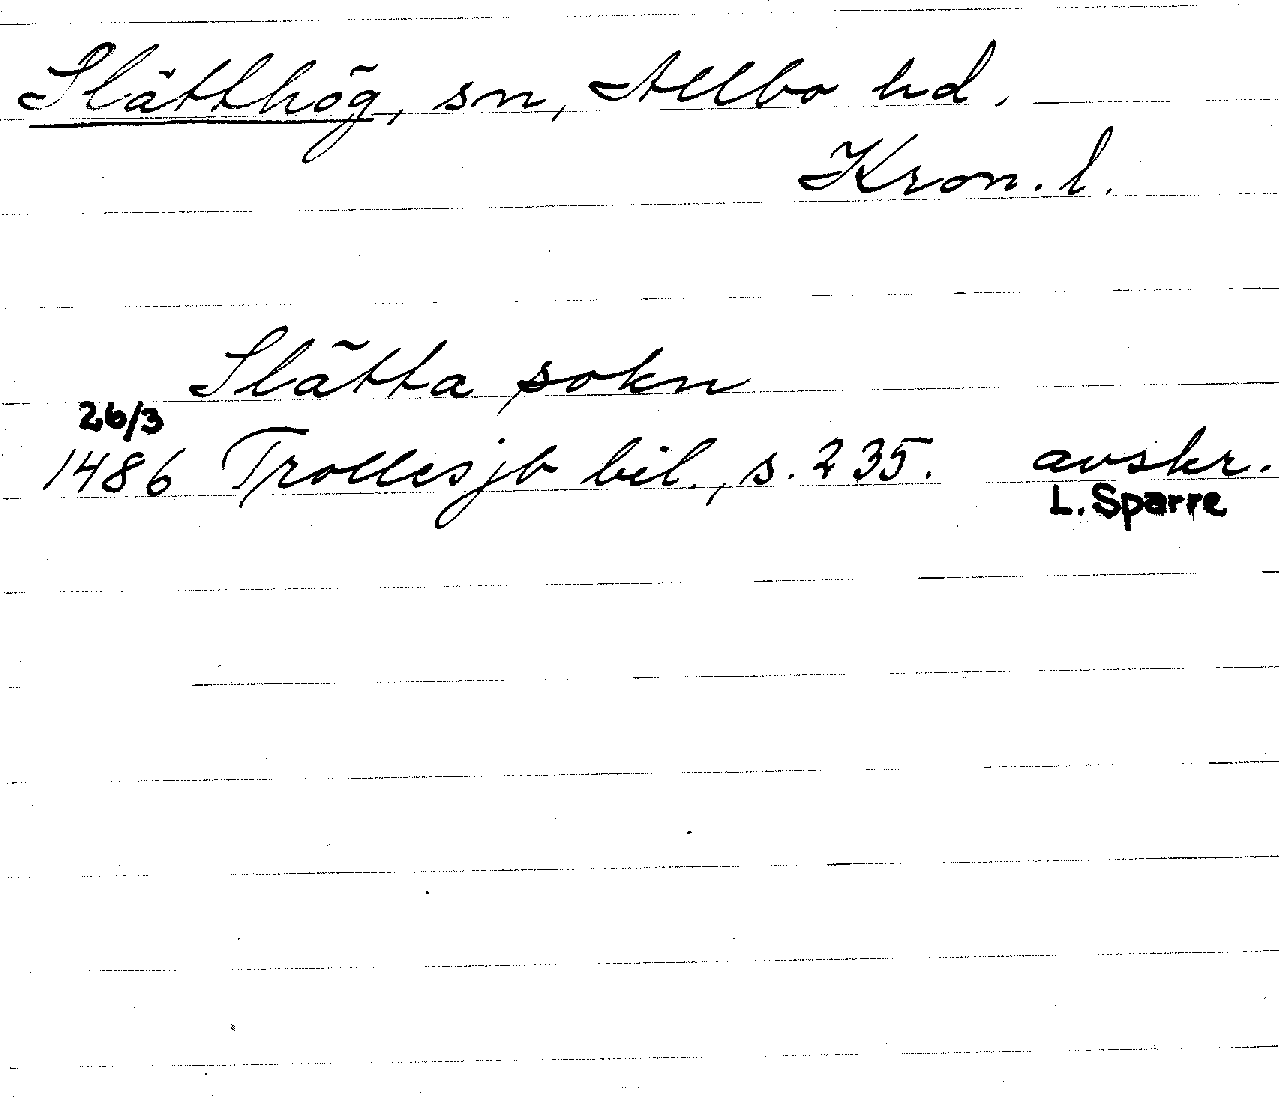 Slätthög, sn, Allbo hd.
Kron. l.
Slätta sokn
26/3
1486 Trollesjb bil., s. 235. avskr.
L. Sparre